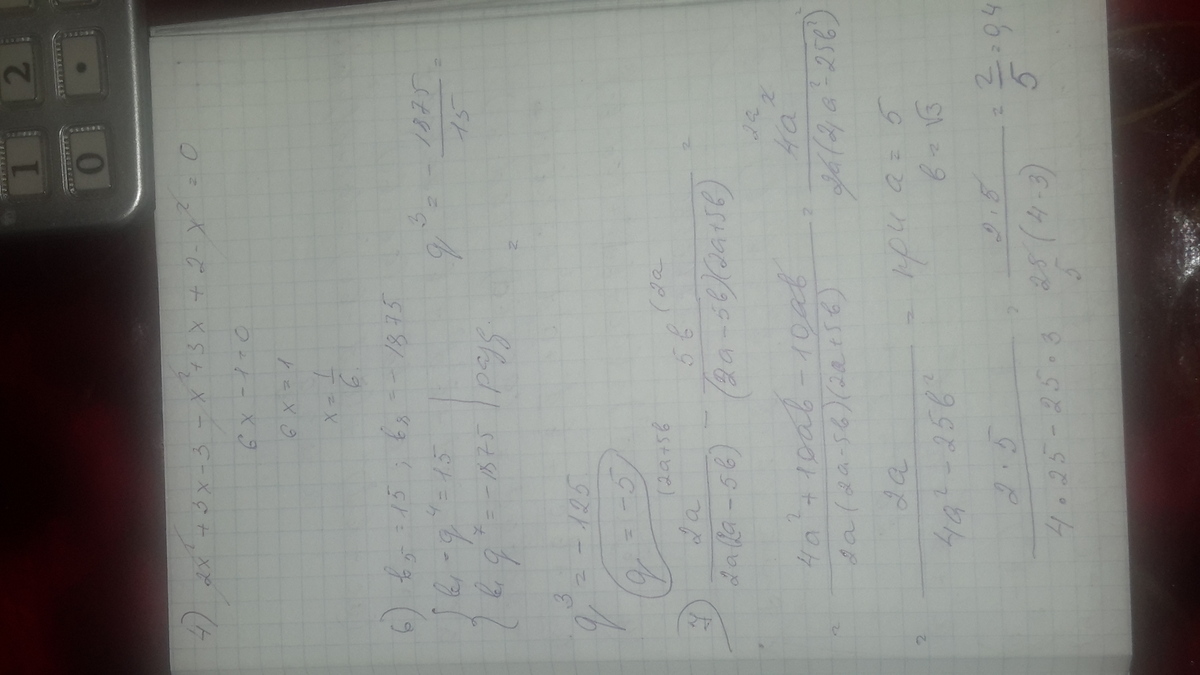 4) 2x² + 3x - 3 - x² + 3x + 2 - x² = 0
6x - 1 + 0
6x = 1
x = 1/6
6) b₅ = 15 ; b₈ = - 1875
{ b₁ · q⁴ = 15
b₁ q⁷ = - 1875 | разд.
q³ = - 1875/15 =
=
q³ = - 125
q = - 5
7) 2a (2a+5b / 2a(2a - 5b) - 5b (2a / (2a - 5b)(2a + 5b) =
= 4a² + 10ab - 10ab / 2a(2a - 5b)(2a + 5b) = 2a 4a² / 2a(4a² - 25b²)
= 2a / 4a² - 25b² = при a = 5
b = √3
2 · 5 / 4 · 25 - 25 · 3 = 2 · 5 / 25 (4 - 3) 5 = 2/5 = 0,4
1
2
0
.